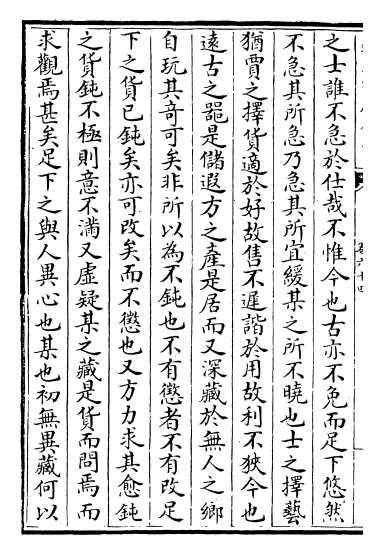 之士誰不急於仕哉不惟今也古亦不免而足下悠然
不急其所急乃急其所宜緩某之所不曉也士之擇藝
猶賈之擇貨適於好故售不遲諧於用故利不狹今也
遠古之器是儲遐方之產是居而又深藏於無人之鄉
自玩其奇可矣非所以為不鈍也不有懲者不有改足
下之貨已鈍矣亦可改矣而不懲也又方力求其愈鈍
之貨鈍不極則意不滿又虛疑某之藏是貨而問焉而
求觀焉甚矣足下之與人異心也某也初無異藏何以
卷六十四